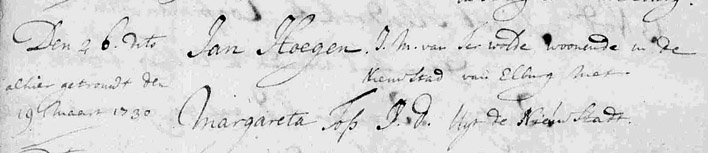 Den 26. dito Jan Hoegen. J. M. van Terwolde woonende in de
alhier getrouwt den Nieuwstad van Elburg met
19 Maart 1730 Margareta Tops J. d. Uyt de Nieuwstadt.